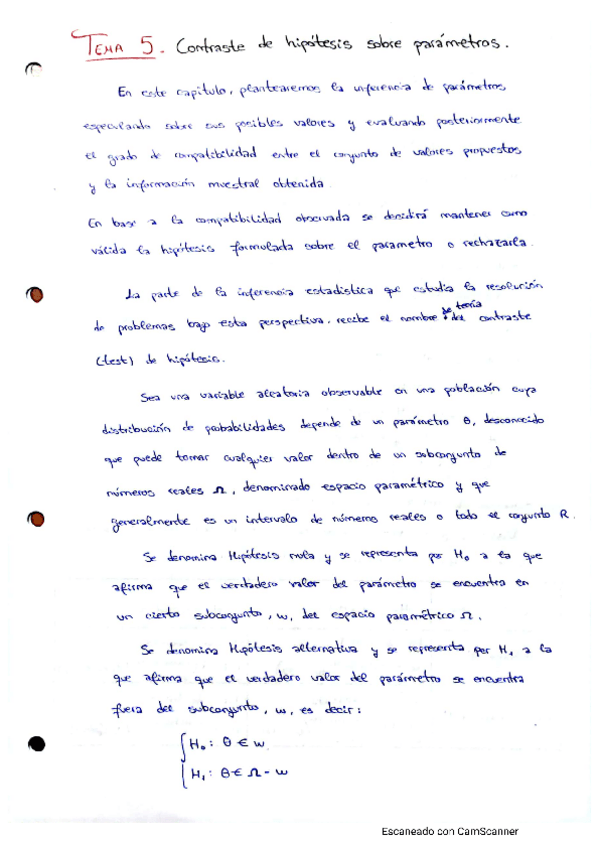 TEMA 5. Contraste de hipótesis sobre parámetros.
En este capítulo, plantearemos la inferencia de parámetros
especulando sobre sus posibles valores y evaluando posteriormente
el grado de compatibilidad entre el conjunto de valores propuestos
y la información muestral obtenida.
En base a la compatibilidad observada se decidirá mantener como
válida la hipótesis formulada sobre el parametro o rechazarla.
La parte de la inferencia estadística que estudia la resolución
de problemas bajo esta perspectiva, recibe el nombre de teoría del contraste
(test) de hipótesis.
Sea una variable aleatoria observable en una población cuya
distribución de probabilidades depende de un parámetro θ, desconocido
que puede tomar cualquier valor dentro de un subconjunto de
números reales Ω, denominado espacio paramétrico y que
generalmente es un intervalo de números reales o todo el conjunto R.
Se denomina Hipótesis nula y se representa por H₀ a la que
afirma que el verdadero valor del parámetro se encuentra en
un cierto subconjunto, w, del espacio paramétrico Ω.
Se denomina Hipótesis alternativa y se representa por H₁ a la
que afirma que el verdadero valor del parámetro se encuentra
fuera del subconjunto, w, es decir:
H₀: θ ∈ w
H₁: θ ∈ Ω - w
Escaneado con CamScanner